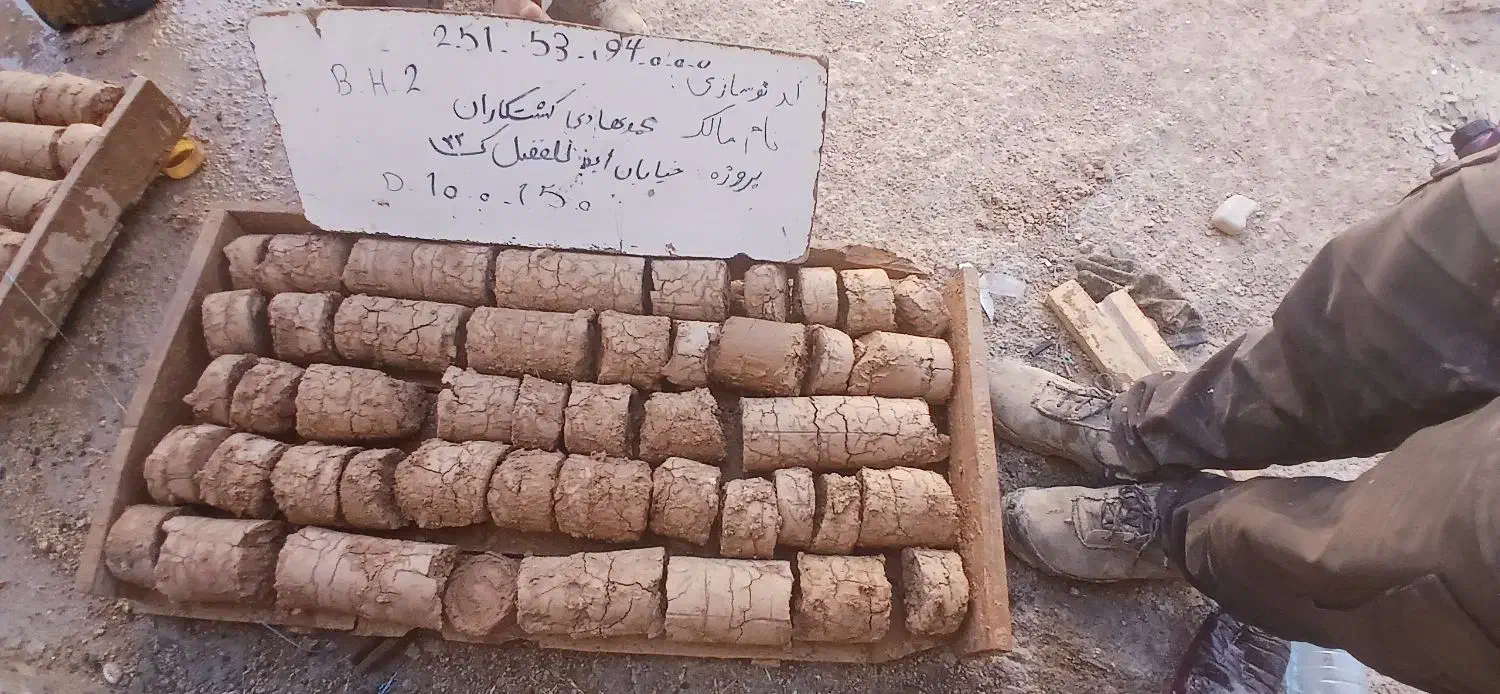 251.53.194.0.0.0
کد نوسازی:
B.H.2
نام مالک محمدهادی کشتکاران
پروژه خیابان ابوالفضل ک ۳۳
D.10.0.15.0